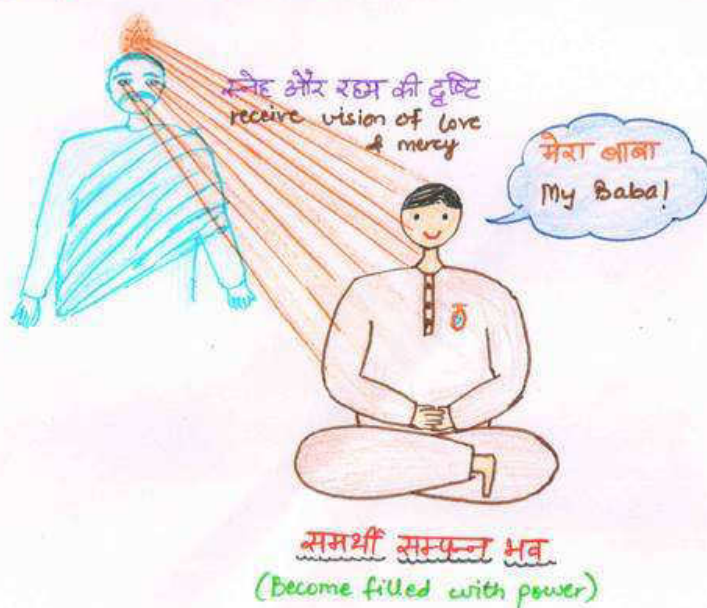 स्नेह और रहम की दृष्टि
receive vision of love
& mercy
मेरा बाबा
My Baba!
समर्थी सम्पन्न भव
(Become filled with power)